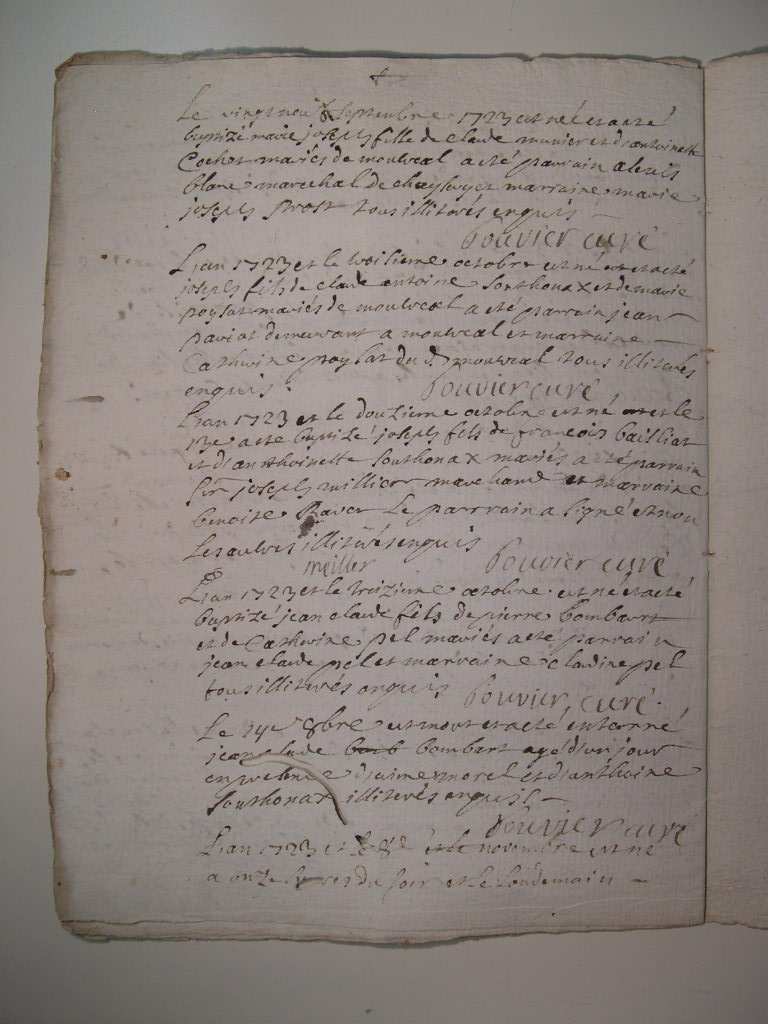 Le vingt neuf septembre 1723 est né et a eté
baptizé marie joseph fille de claude munier et d'anthoinette
Cochet mariés de montreal a eté parrain alexis
blanc marechal de et marraine marie
joseph prost tous illiterés enquis
bouvier curé
L'an 1723 et le troisieme octobre est né et a eté
joseph fils de claude antoine Sonthonax et de marie
poylat mariés de montreal a eté parrain jean
paviot demeurant a montreal et marraine
Catherine poylat du d. montreal tous illiterés
enquis. bouvier curé
L'an 1723 et le douzieme octobre est né et le
13e a eté baptizé joseph fils de françois bailliat
et d'anthoinette Sonthonax mariés a eté parrain
Sr. joseph millier marchand et marraine
benoite Ravet Le parrain a signé et non
les autres illiterés enquis
meillier bouvier curé
L'an 1723 et le treizieme octobre est né et a eté
baptizé jean claude fils de pierre bombart
et de Catherine pel mariés a eté parrain
jean claude pel et marraine cladine pel
tous illiterés enquis bouvier curé.
Le 14e 8bre est mort et a eté enterré
jean claude bombart agé d'un jour
en presence d'aime morel et d'anthoine
Sonthonax illiterés enquis
bouvier curé
L'an 1723 et le 8e novembre est né
a onze heures du soir et le lendemain